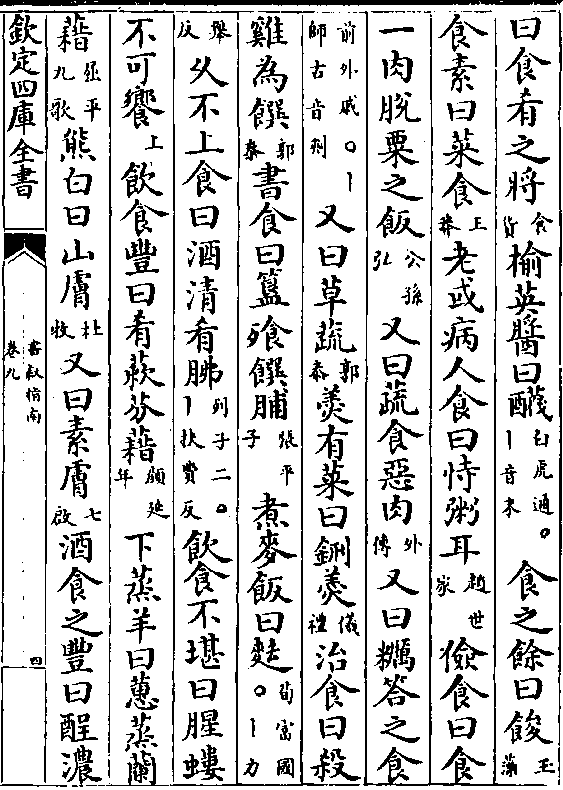 曰食肴之將食貨榆莢醬曰白虎通。丨音末食之餘曰餕玉藻
食素曰菜食王莽老或病人食曰恃粥耳趙世家儉食曰食
一肉脫粟之飯公孫弘又曰蔬食惡肉外傳又曰糲答之食
前外戚。丨師古音剌又曰草蔬郭泰羮有菜曰鉶羮儀禮治食曰殺
雞為饌郭泰書食曰簋飱饌脯張平子煮麥飯曰麮荀富國。丨力
舉反久不上食曰酒清肴胏列子二。丨扶費反飲食不堪曰腥螻
不可饗上飲食豐曰肴蔌芬藉顔延年下蒸羊曰蕙蒸蘭
藉屈平九歌熊白曰山膚杜牧又曰素膚七啟酒食之豐曰酲濃
欽定四庫全書
書叙指南
卷九
四